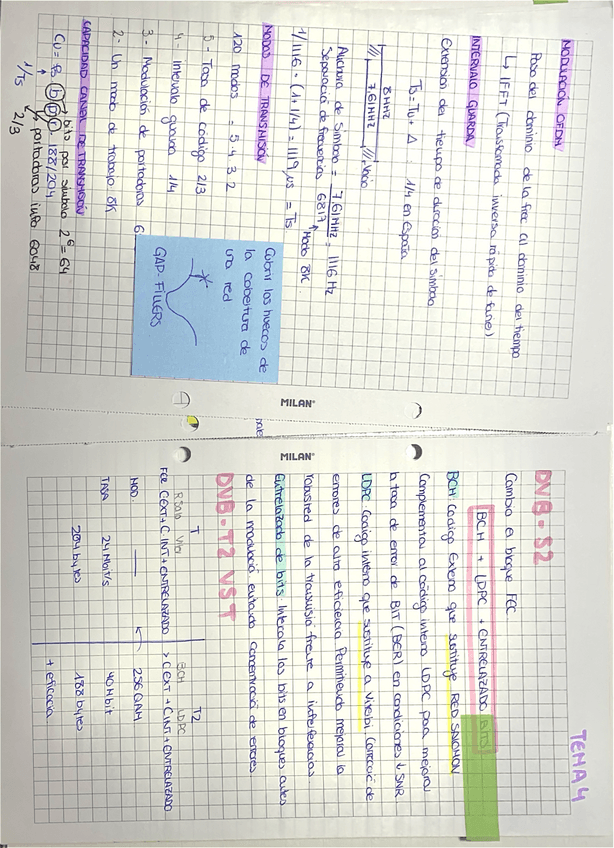 MODULACIÓN OFDM
Pasa del dominio de la frec al dominio del tiempo
↳ IFFT (Transformada inversa rápida de fourier)
INTERVALO GUARDA
Extensión del tiempo de duración del símbolo
Ts = Tu + Δ : 1/4 en España
8 MHz
7.61 MHz
Anchura de símbolo = 7.61 MHz = 1116 Hz
Separación de frecuencias 6817
Modo 8K
1/1116 · (1+1/4) = 1119 μs = Ts
MODOS DE TRANSMISIÓN
120 modos = 5·4·3·2
5- Tasa de código 2/3
4- Intervalo guarda 1/4
3- Modulación de portadoras 6
2- Un modo de trabajo 8K
Cubrir los huecos de
la cobertura de
una red
GAP-FILLERS
CAPACIDAD CANAL DE TRANSMISIÓN
188/204
bits por símbolo 2⁶ = 64
portadoras info 6048
1/Ts
2/3
MILAN
MILAN
TEMA 4
DVB-S2
Cambia el bloque FEC
BCH + LDPC + ENTRELAZADO BITS
BCH: Código Externo que sustituye RED SALOMON
Complementa al código interno LDPC para mejorar
la tasa de error de BIT (BER) en condiciones ↓ SNR
LDPC Código interno que sustituye a Viterbi, Corrección de
errores de alta eficiencia. Permitiendo mejorar la
robustred de la transmisión frente a interferencias.
Entrelazado de bits: Intercala los bits en bloques antes
de la modulación, evitando concentración de errores
DVB-T2 VS T
T T2
BCH LDPC
FEC CEXT + C.INT + ENTRELAZADO > CEXT + C.INT + ENTRELAZADO
MOD. —— 256QAM
TASA 24Mbit/s 40Mbit
204 bytes 188 bytes
+ eficacia